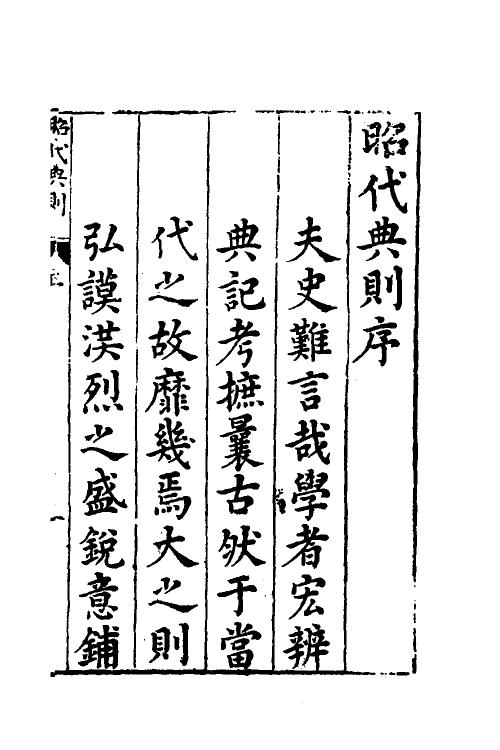 昭代典則序
夫史難言哉學者宏辨
典記考摭曩古然于當
代之故靡幾焉大之則
弘謨洪烈之盛銳意鋪
昭代典則
序
一